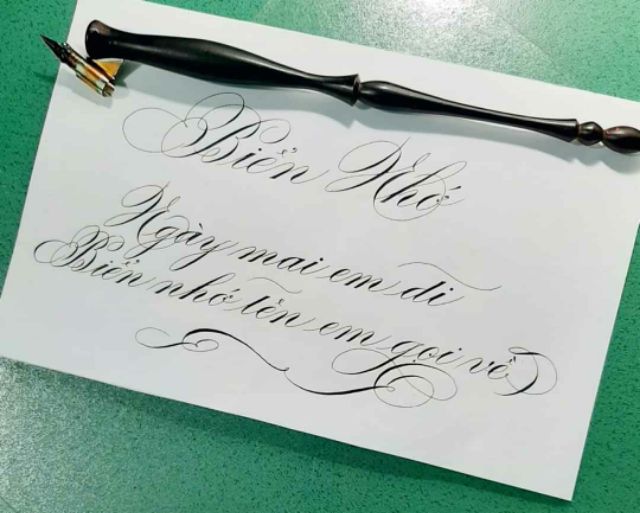 Biển Nhớ
Ngày mai em đi
Biển nhớ tên em gọi về